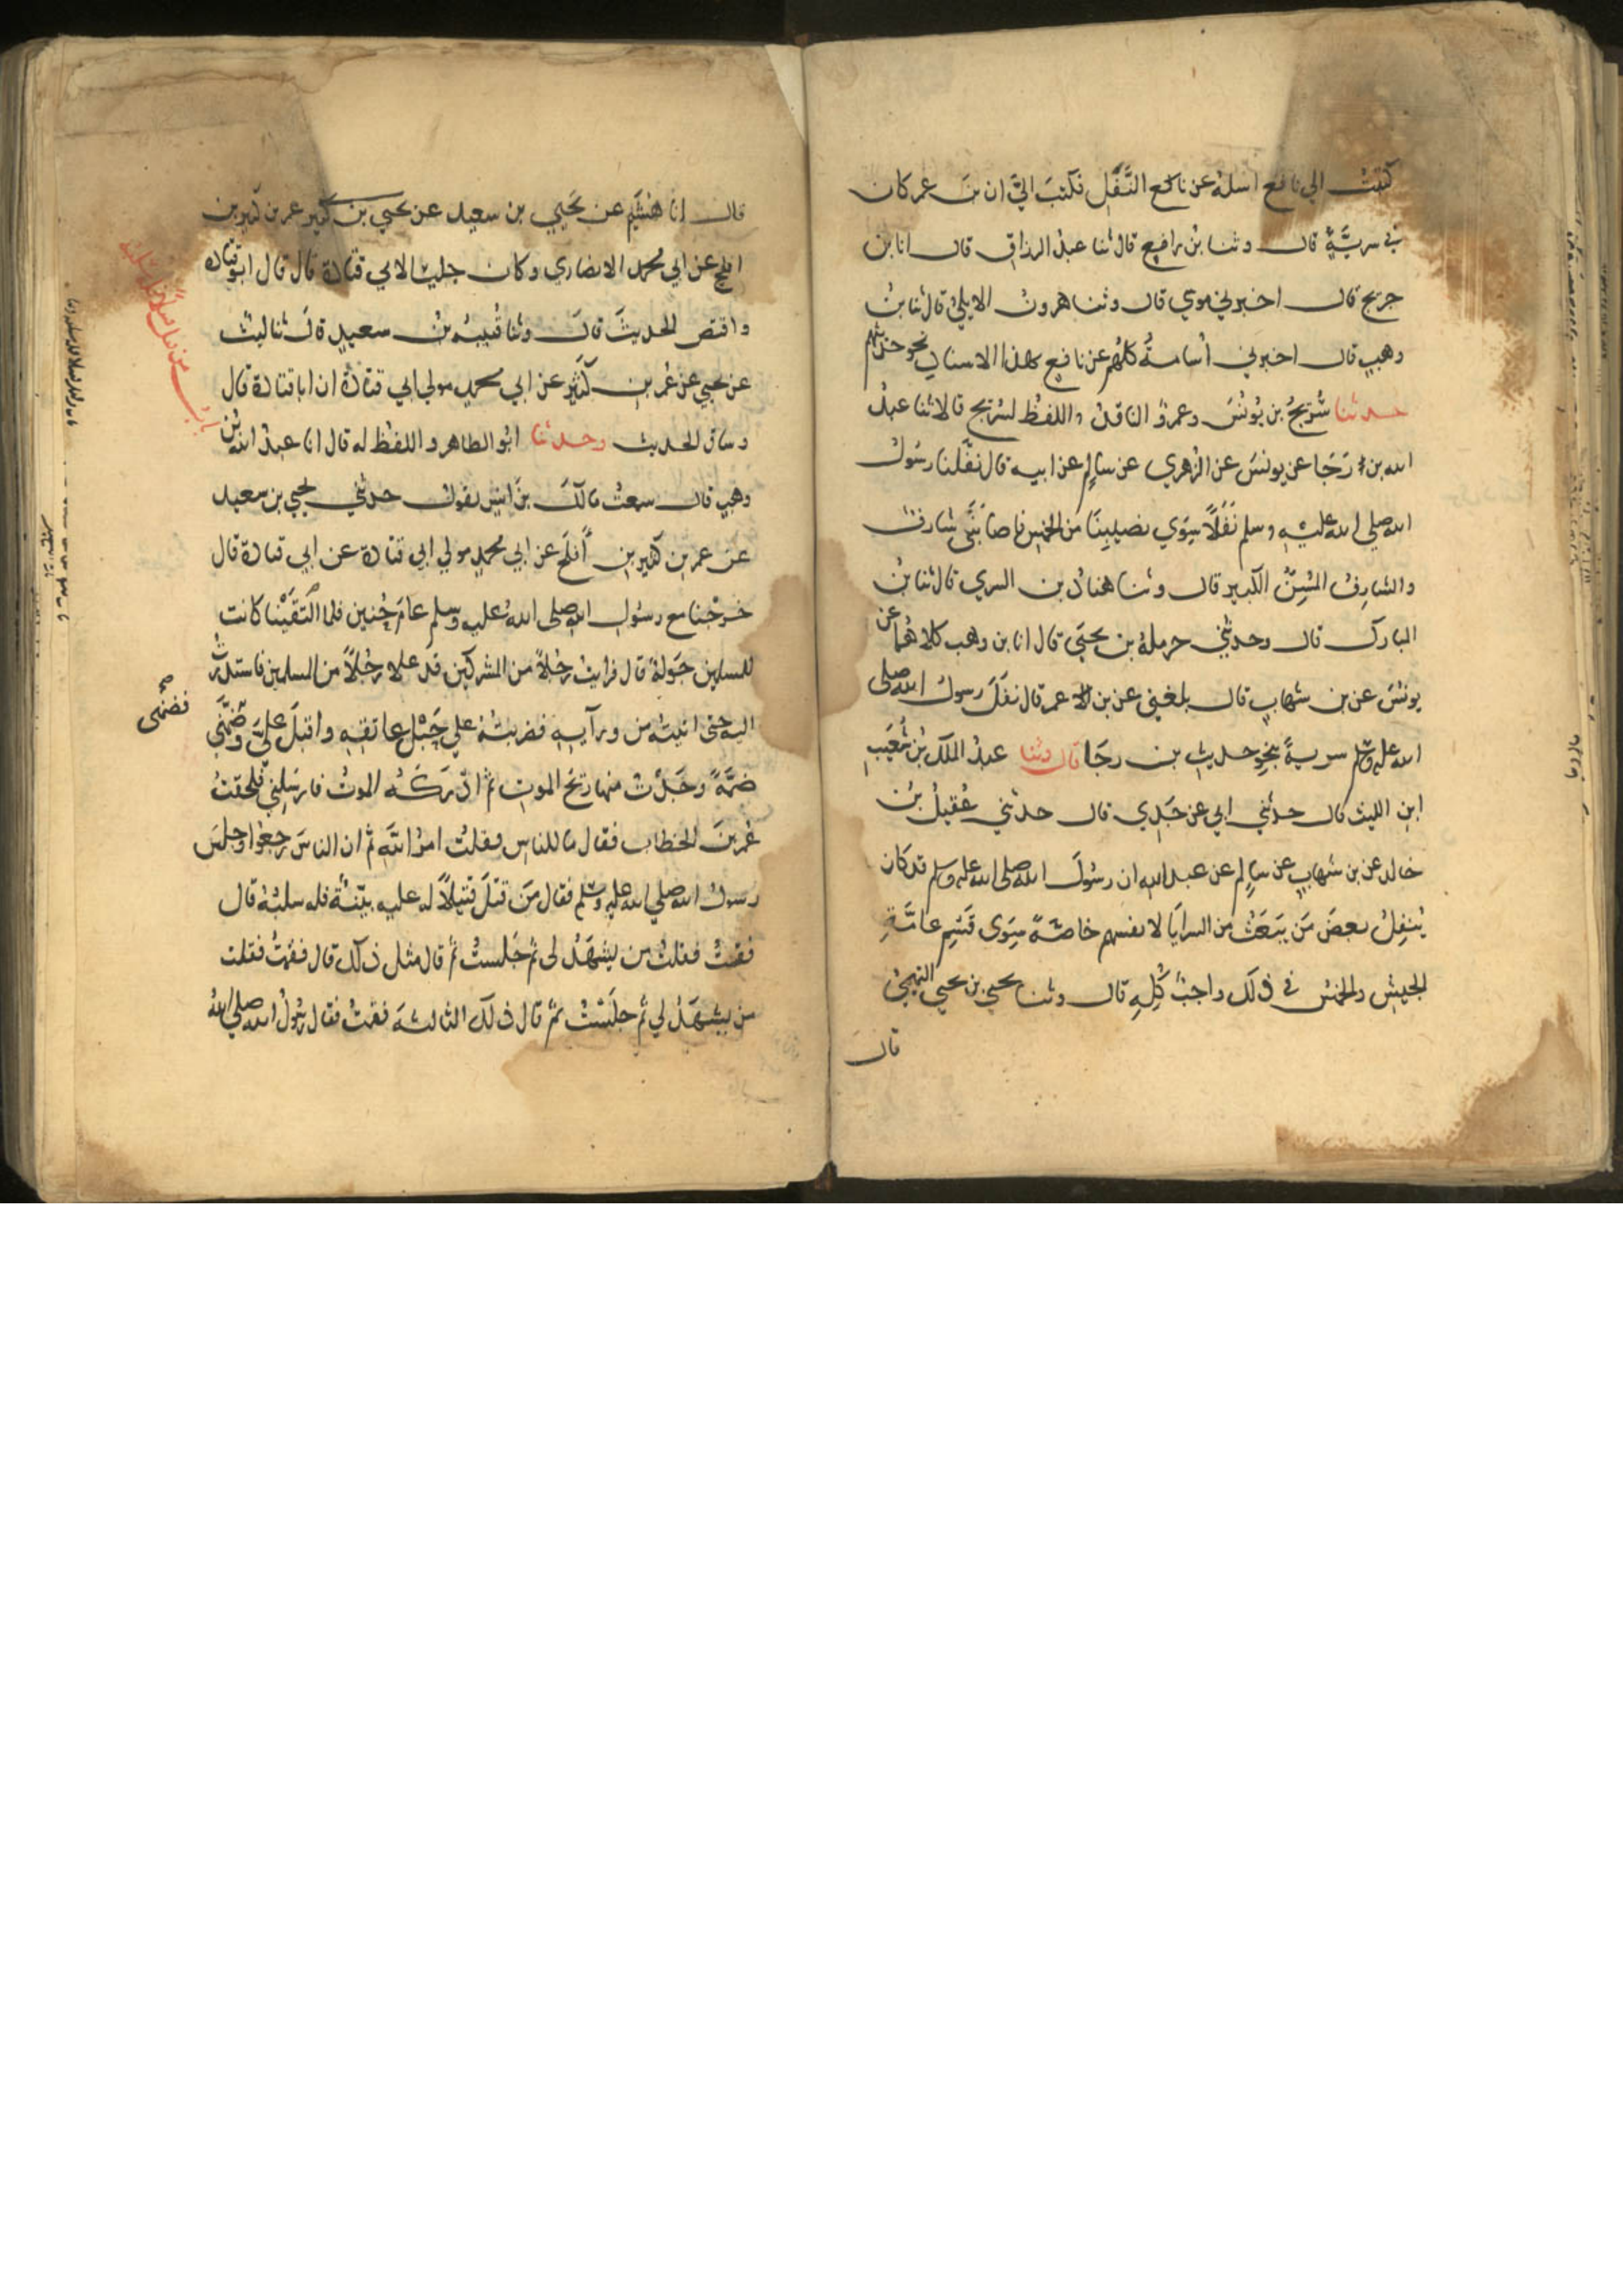 كتبت الي نافع اسله عن نافع النَّفَل فكتبَ اليَّ ان بن عمر كان
في سريَّةٍ قال وثنا بن رافع قال ثنا عبدُ الرزاق قال انا بن
جريج قال اخبرني موسي قال وثنا هرونُ الايليُّ قال ثنا بنُ
وهبٍ قال اخبرني أُسامةُ كلُّهم عن نافع بهذا الاسناد نحو حديثهم
حدثنا سُرَيجُ بن يُونُسَ وعمرٌو الناقدُ واللفظ لسُرَيج قالا ثنا عبدُ
الله بن رَجَا عن يونسَ عن الزُهري عن سالمٍ عن ابيه قال نفَّلَنا رسُولُ
الله صلى الله عليه وسلم نَفَلًا سِوَي نصيبِنَا من الخمسِ فاصابَنَي شارفٌ
والشارفُ المُسِنُّ الكبير قال وثنا هنادُ بن السري قال ثنا بنُ
المبارك قال وحدثني حرملةُ بن يحيَى قال انا بن وهب كلاهُما عن
يونسَ عن بن شهابٍ قال بلغني عن بن عمر قال نفَلَ رسولُ الله صلى
الله عليه وسلم سريةً بنحوِ حديثِ بن رجَا قال وثنا عبدُ الملك بنُ شُعَيبِ
ابنِ الليث قال حدثني ابي عن جَدِي قال حدثني عُقيلُ بنُ
خالد عن بن شهابٍ عن سالمٍ عن عبد الله ان رسُولَ الله صلى الله عليه وسلم قد كان
يُنفِلُ بعضَ مَن يَبعَثُ من السرايَا لانفسهم خاصّةً سِوَى قَسْمِ عامَّةِ
الجيش والخمسُ في ذلك واجبٌ كُلِهِ قال وثنا يحيى بن يحيى التميميُّ
قال
قال انا هُشَيْم عن يَحْيَي بن سعيد عن يحيي بن كثير عمر بن كثير بن
افلح عن ابي محمد الانصاري وكان جليسًا لابي قتادة قال قال ابو قتادة
واقتص الحديثَ قال وثنا قُتيبةُ بنُ سعيدٍ قال ثنا ليثٌ
عن يحيي عن عُمر بن كَثيرٍ عن ابي محمدٍ مولي ابي قتادة ان ابا قتادة قال
وساق الحديث وحدثنا ابُو الطاهر واللفظ له قال انا عبدُ الله بنُ
وهبٍ قال سمعتُ مالكَ بنَ انسٍ يقولُ حدثني يحيي بن سعيد
عن عمر بن كثير بن أفلَحَ عن ابي محمدٍ مولي ابي قتادة عن ابي قتادة قال
خرجْنا مع رسُولِ الله صلى الله عليه وسلم عامَ حُنينٍ فلما التَقَيْنا كانت
للمسلمين جَولةٌ قال فرايتُ رجُلاً من المشركين قد علا رجُلاً من المسلمين فاستدرتُ
اليه حتى اتيتُه من ورآيِهِ فضربتُهُ علي حَبْلِ عاتقِهِ واقبلَ عليَّ وضَمَّني
فضمني
ضمَّةً وَجَدْتُ منها ريحَ الموتِ ثم ادْرَكَهُ الموتُ فارسَلني فلحقتُ
عُمر بنَ الخطاب فقال ما للناسِ فقلتُ امرُ اللّهِ ثم ان الناسَ رجعُوا وجلسَ
رسولُ الله صلي الله عليه وسلم فقال مَن قتَلَ قتيلاً له عليه بيّنةٌ فله سلبُهُ قال
فقمتُ فقلتُ من يشهَدُ لي ثم جَلستُ ثم قال مثل ذلك قال فقمتُ فقلت
من يشهَدُ لي ثم جلَستُ ثم قال ذلك الثالثةَ فقمتُ فقال رسُولُ الله صلى الله